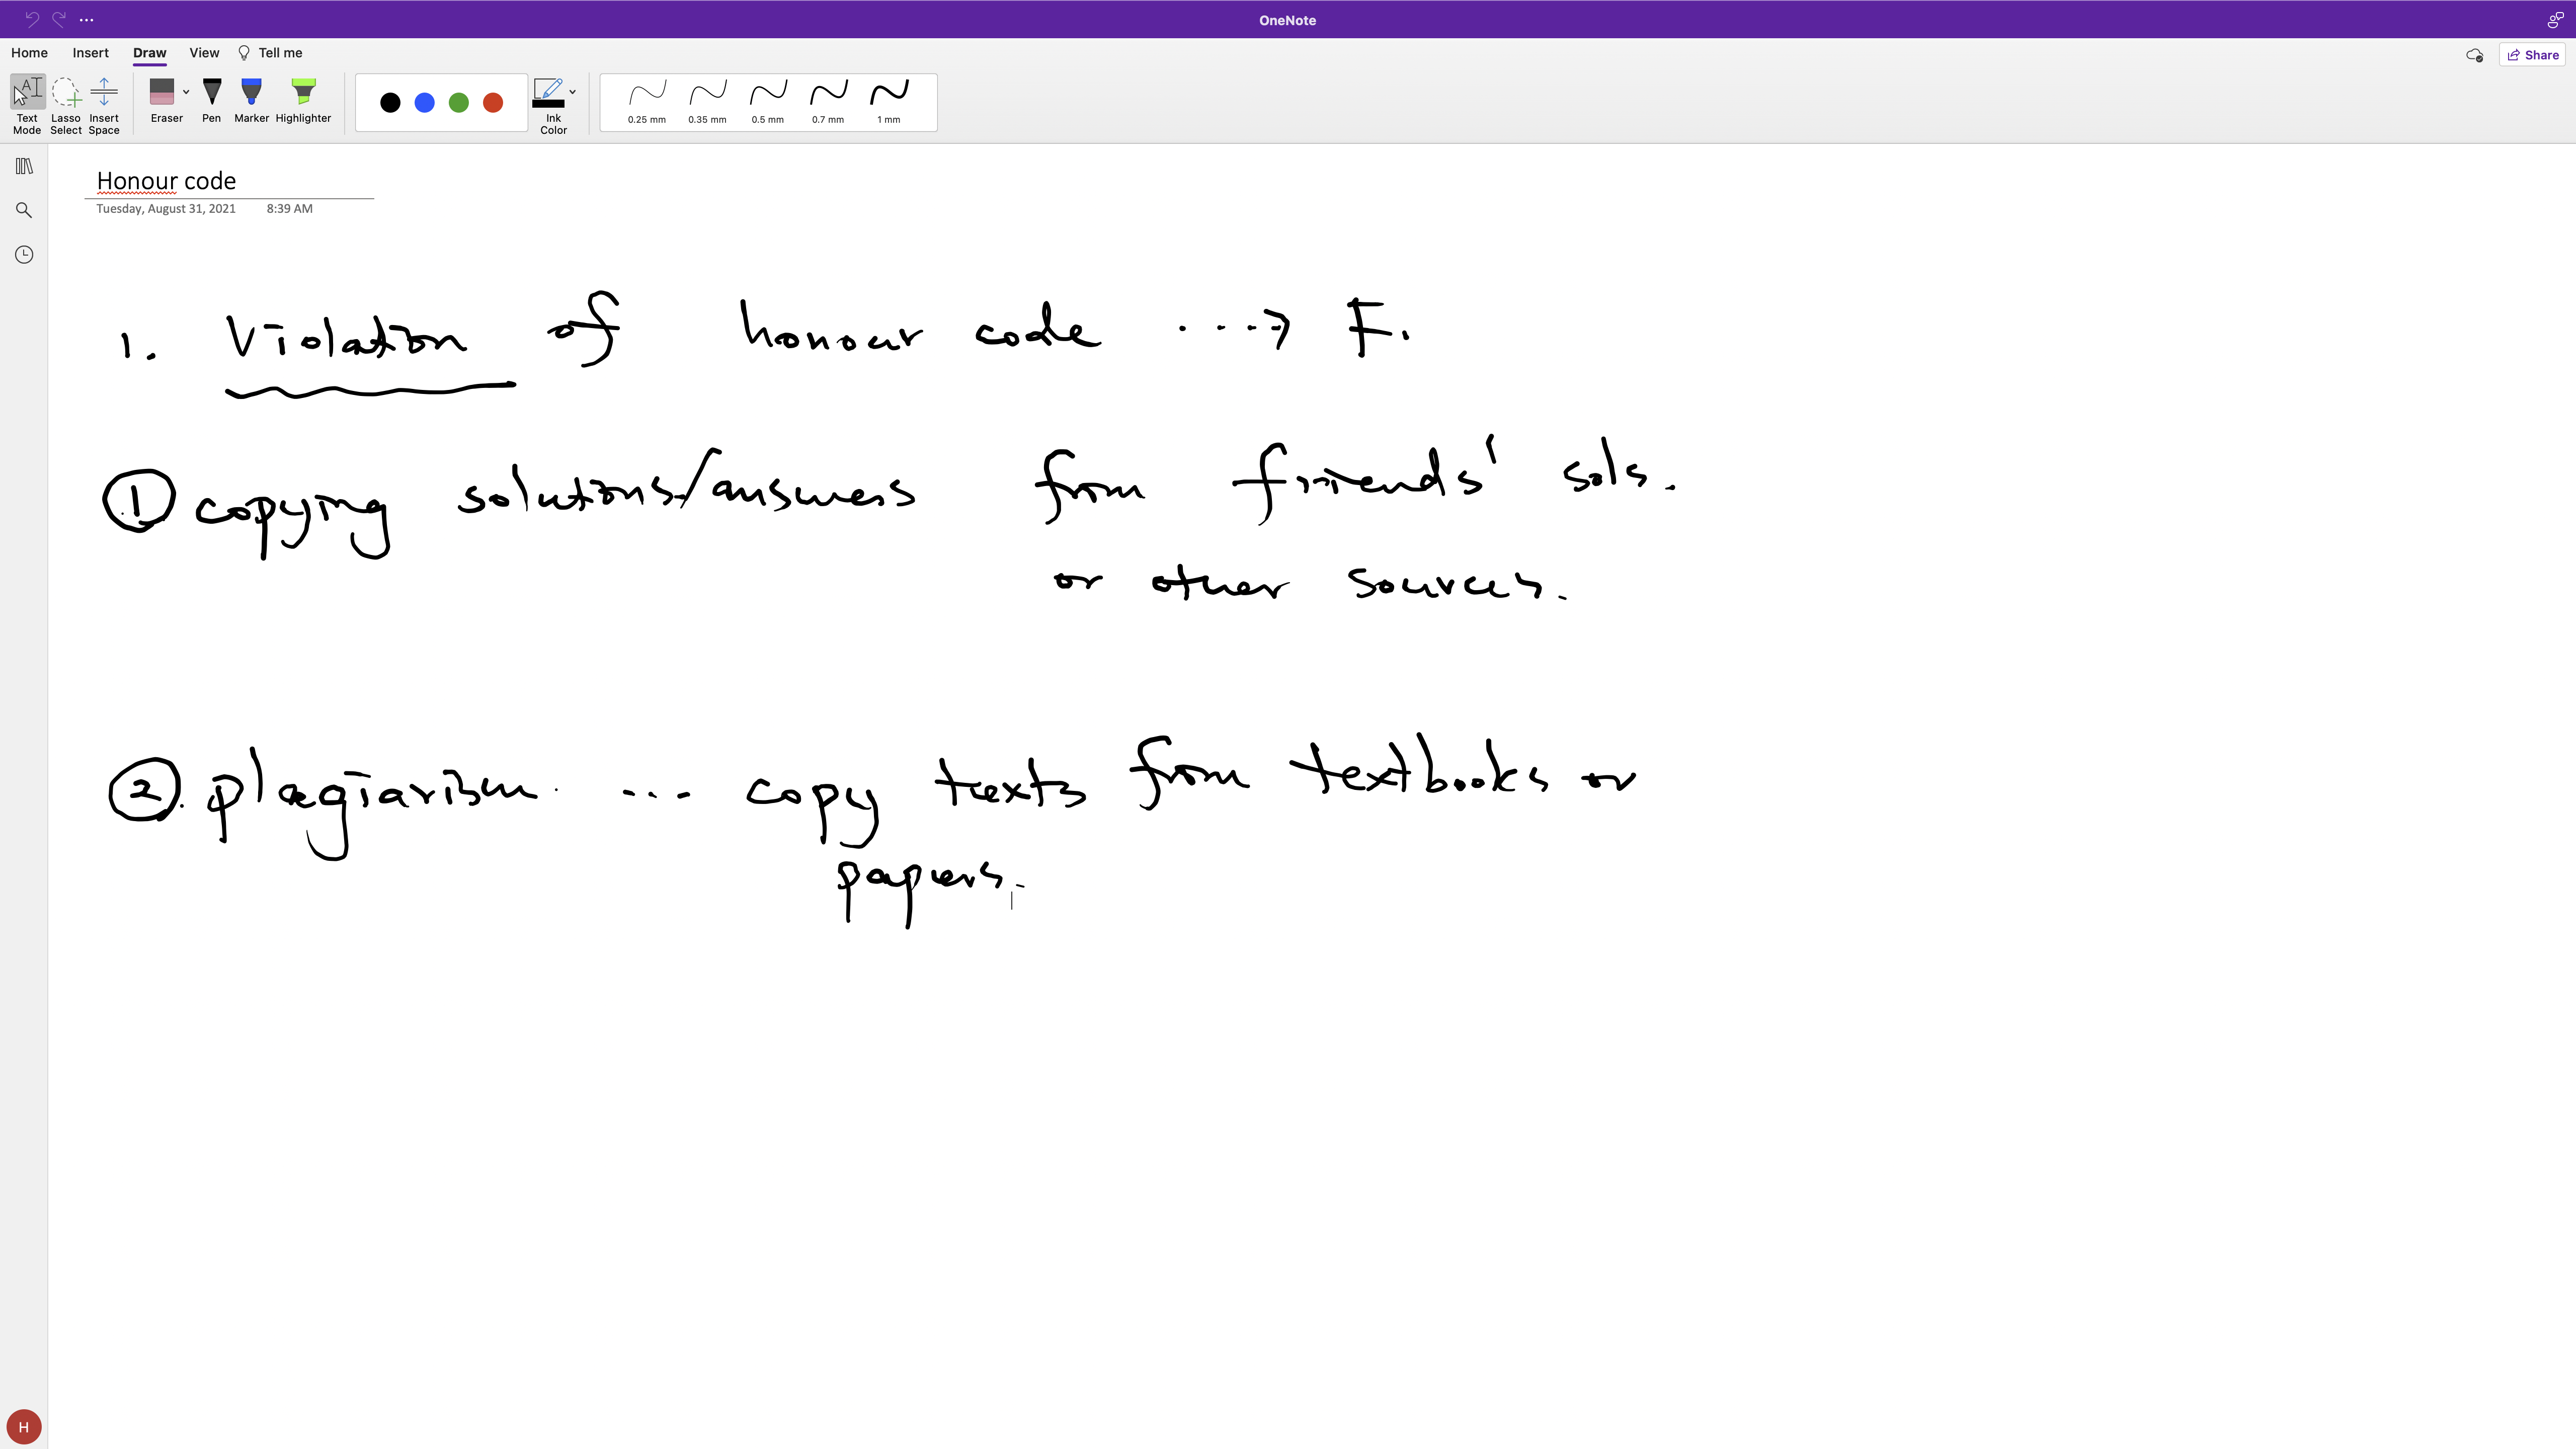 OneNote
Home Insert Draw View Tell me
Share
Text Mode
Lasso Select
Insert Space
Eraser
Pen
Marker
Highlighter
Ink Color
0.25 mm
0.35 mm
0.5 mm
0.7 mm
1 mm
Honour code
Tuesday, August 31, 2021 8:39 AM
1. Violation of honour code ...→ F.
① copying solutions/answers from friends' sols.
or other sources.
②. plagiarism ... copy texts from textbooks or
papers.
H